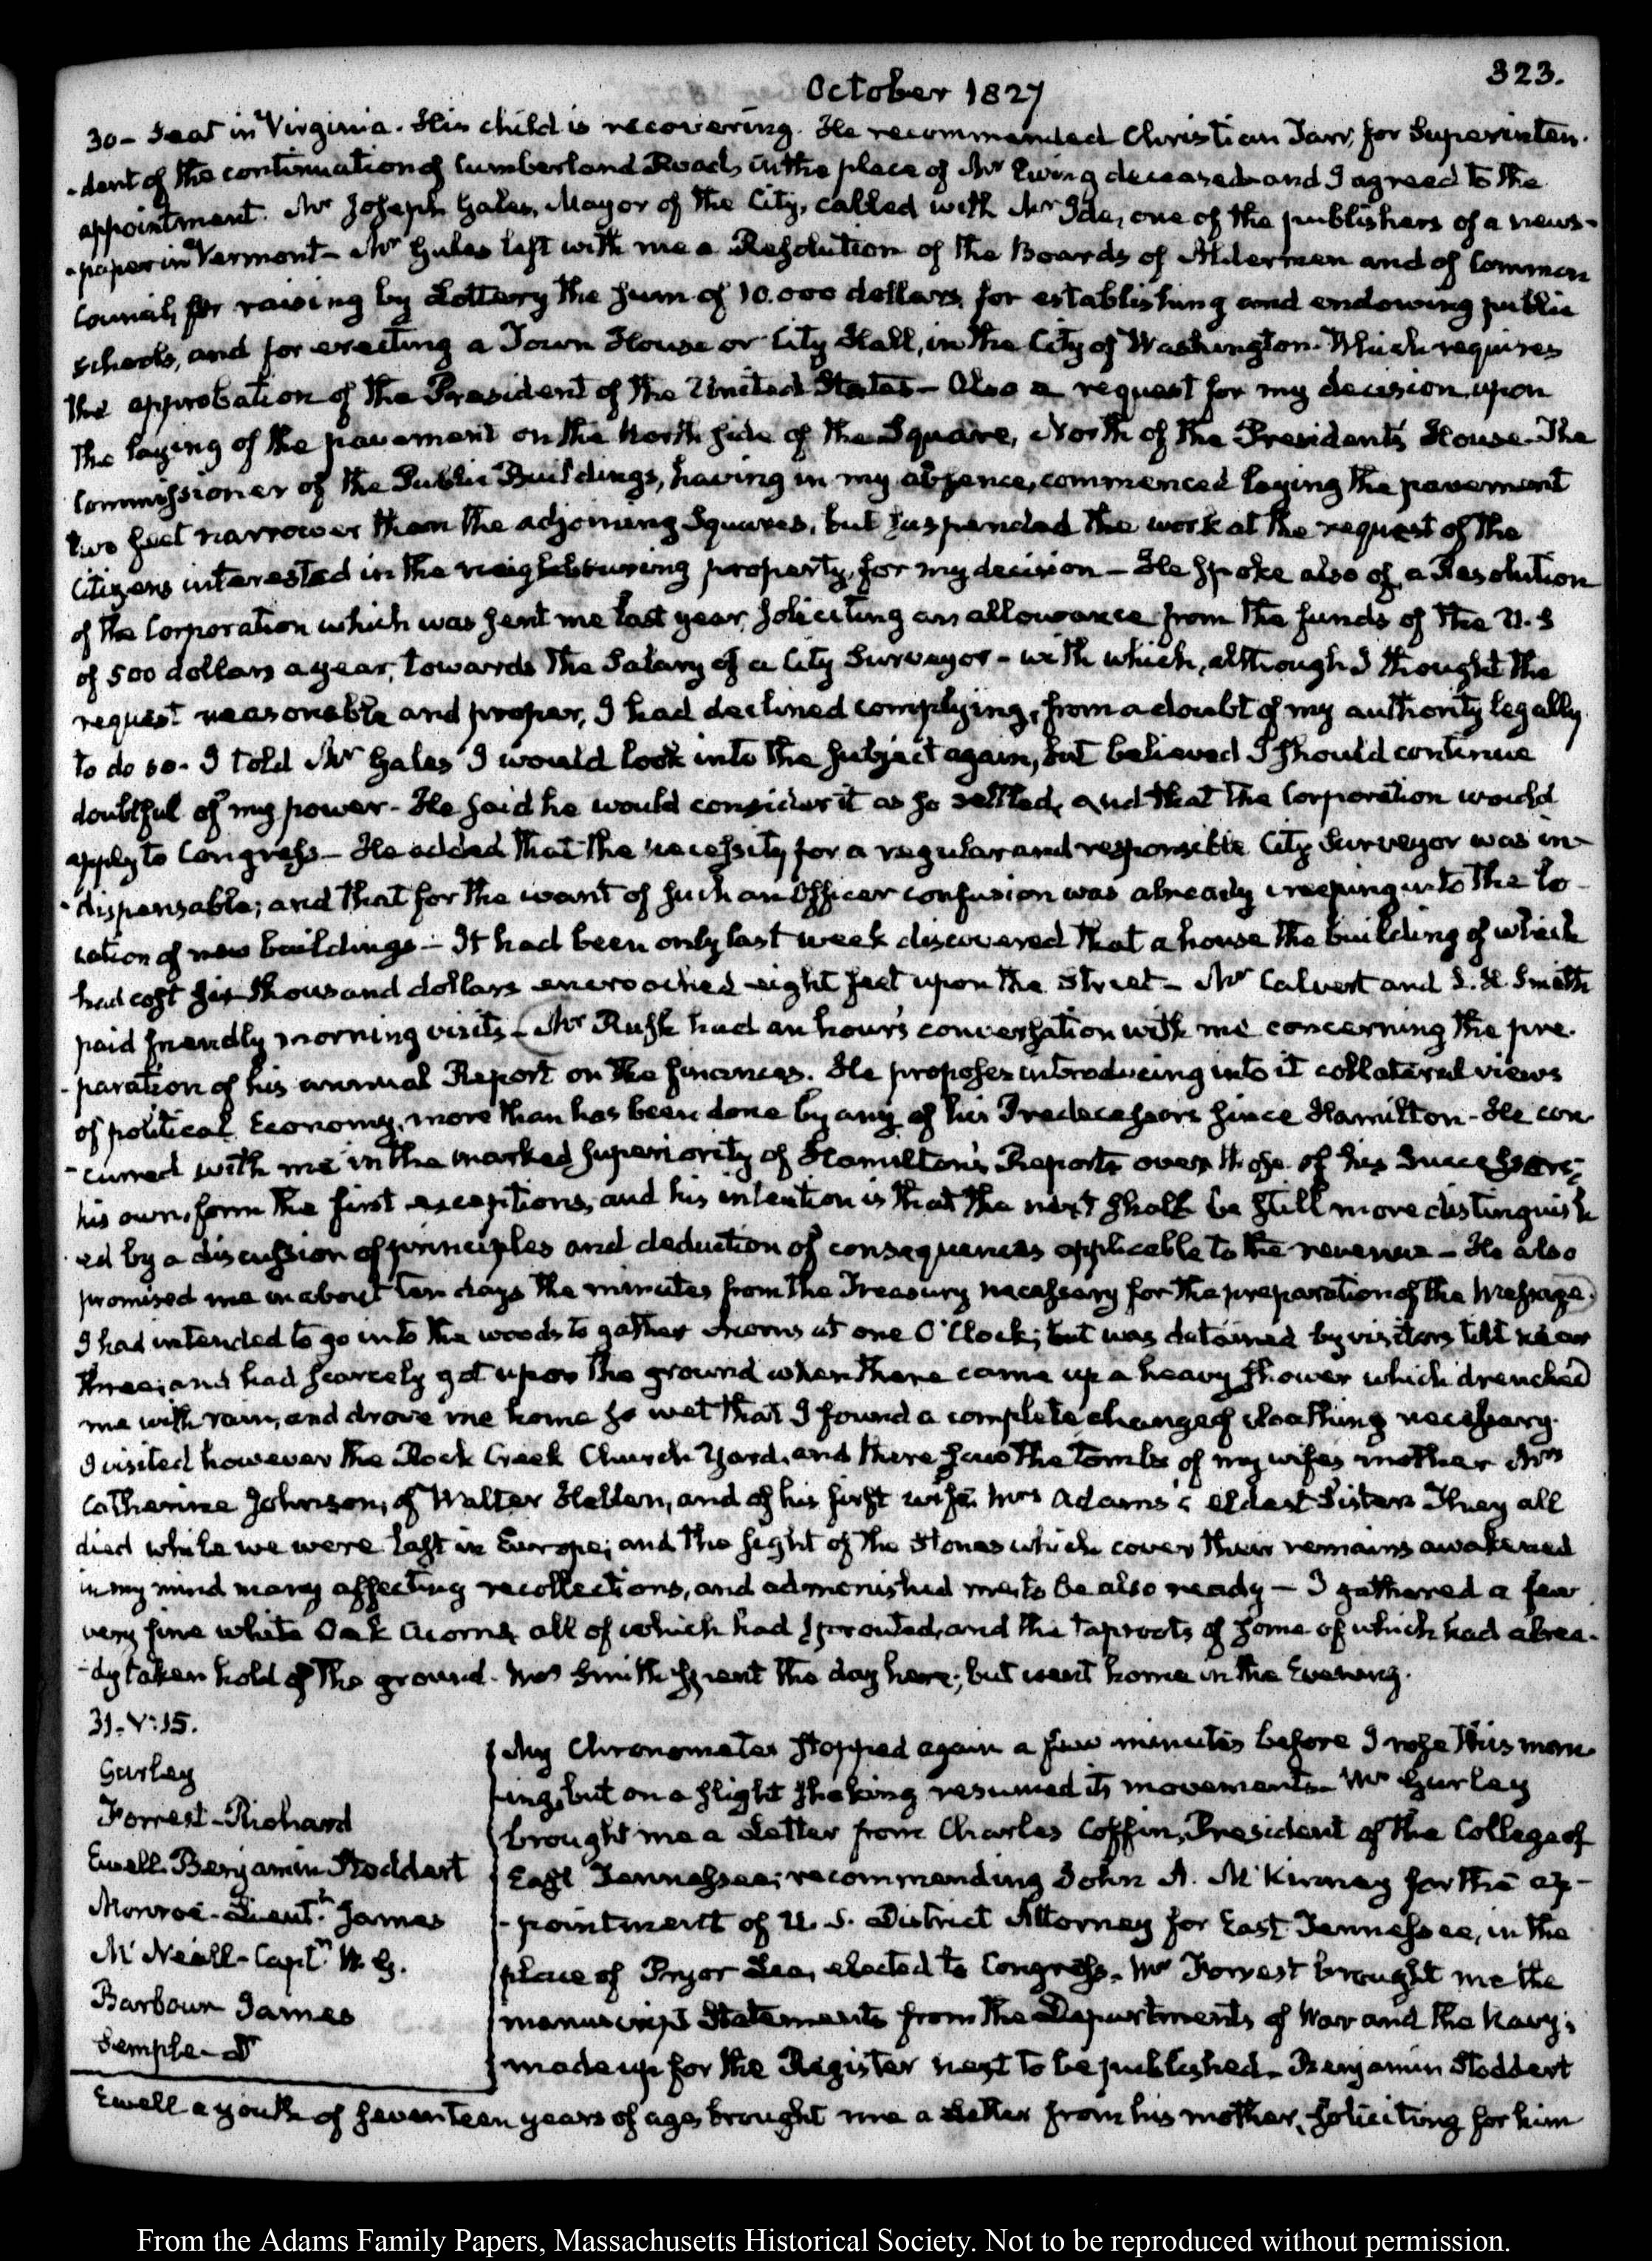 323.
October 1827
30 - Seat in Virginia. His child is recovering. He recommended Christian Tarr, for Superinten-
-dent of the continuation of Cumberland Road, in the place of Mr Ewing deceased and I agreed to the
appointment. Mr Joseph Gales, Mayor of the City, called with Mr Ide, one of the publishers of a news-
-paper in Vermont - Mr Gales left with me a Resolution of the Boards of Aldermen and of Common
Council, for raising by Lottery the sum of 10.000 dollars, for establishing and endowing public
schools, and for erecting a Town House or City Hall, in the City of Washington. Which requires
the approbation of the President of the United States - Also a request for my decision upon
the laying of the pavement on the North side of the Square, North of the President's House. The
Commissioner of the Public Buildings, having in my absence, commenced laying the pavement
two feet narrower than the adjoining Squares, but suspended the work at the request of the
Citizens interested in the neighbouring property, for my decision - He spoke also of a Resolution
of the Corporation which was sent me last year, soliciting an allowance from the funds of the U.S
of 500 dollars a year, towards the Salary of a City Surveyor - with which, although I thought the
request reasonable and proper, I had declined complying, from a doubt of my authority legally
to do so. I told Mr Gales I would look into the subject again, but believed I should continue
doubtful of my power - He said he would consider it as so settled, and that the Corporation would
apply to Congress - He added that the necessity for a regular and responsible City Surveyor was in-
-dispensable; and that for the want of such an Officer confusion was already creeping into the lo-
cation of new buildings - It had been only last week discovered that a house the building of which
had cost six thousand dollars encroached eight feet upon the street - Mr Calvert and S. H. Smith
paid friendly morning visits - Mr Rush had an hour's conversation with me concerning the pre-
-paration of his annual Report on the finances. He proposes introducing into it collateral views
of political Economy, more than has been done by any of his Predecessors since Hamilton - He con-
-curred with me in the marked superiority of Hamilton's Reports over those of his Successors;
his own, form the first exceptions, and his intention is that the next shall be still more distinguish
-ed by a discussion of principles and deduction of consequences applicable to the revenue - He also
promised me in about ten days the minutes from the Treasury necessary for the preparation of the Message.
I had intended to go into the woods to gather Acorns at one O'Clock; but was detained by visitors till near
three; and had scarcely got upon the ground when there came up a heavy shower which drenched
me with rain, and drove me home so wet that I found a complete change of cloathing necessary.
I visited however the Rock Creek Church Yard, and there saw the tombs of my wife's mother Mrs
Catherine Johnson, of Walter Hellen, and of his first wife, Mrs Adams's eldest Sister. They all
died while we were last in Europe; and the sight of the stones which cover their remains awakened
in my mind many affecting recollections, and admonished me, to be also ready - I gathered a few
very fine white Oak Acorns, all of which had sprouted, and the taproots of some of which had alrea-
-dy taken hold of the ground. Mrs Smith spent the day here; but went home in the Evening.
31. V:15.
Gurley
Forrest - Richard
Ewell. Benjamin Stoddert
Monroe - Lieut.t James
McNeill - Captn W. G.
Barbour James
Semple
My Chronometer stopped again a few minutes before I rose this morn-
-ing, but on a slight shaking resumed its movements - Mr Gurley
brought me a Letter from Charles Coffin, President of the College of
East Tennessee; recommending John A. McKinney for the ap-
-pointment of U. S. District Attorney for East Tennessee, in the
place of Pryor Lea, elected to Congress. Mr Forrest brought me the
manuscript Statements from the Departments of War and the Navy;
made up for the Register next to be published. Benjamin Stoddert
Ewell a youth of seventeen years of age, brought me a Letter from his mother, soliciting for him
From the Adams Family Papers, Massachusetts Historical Society. Not to be reproduced without permission.